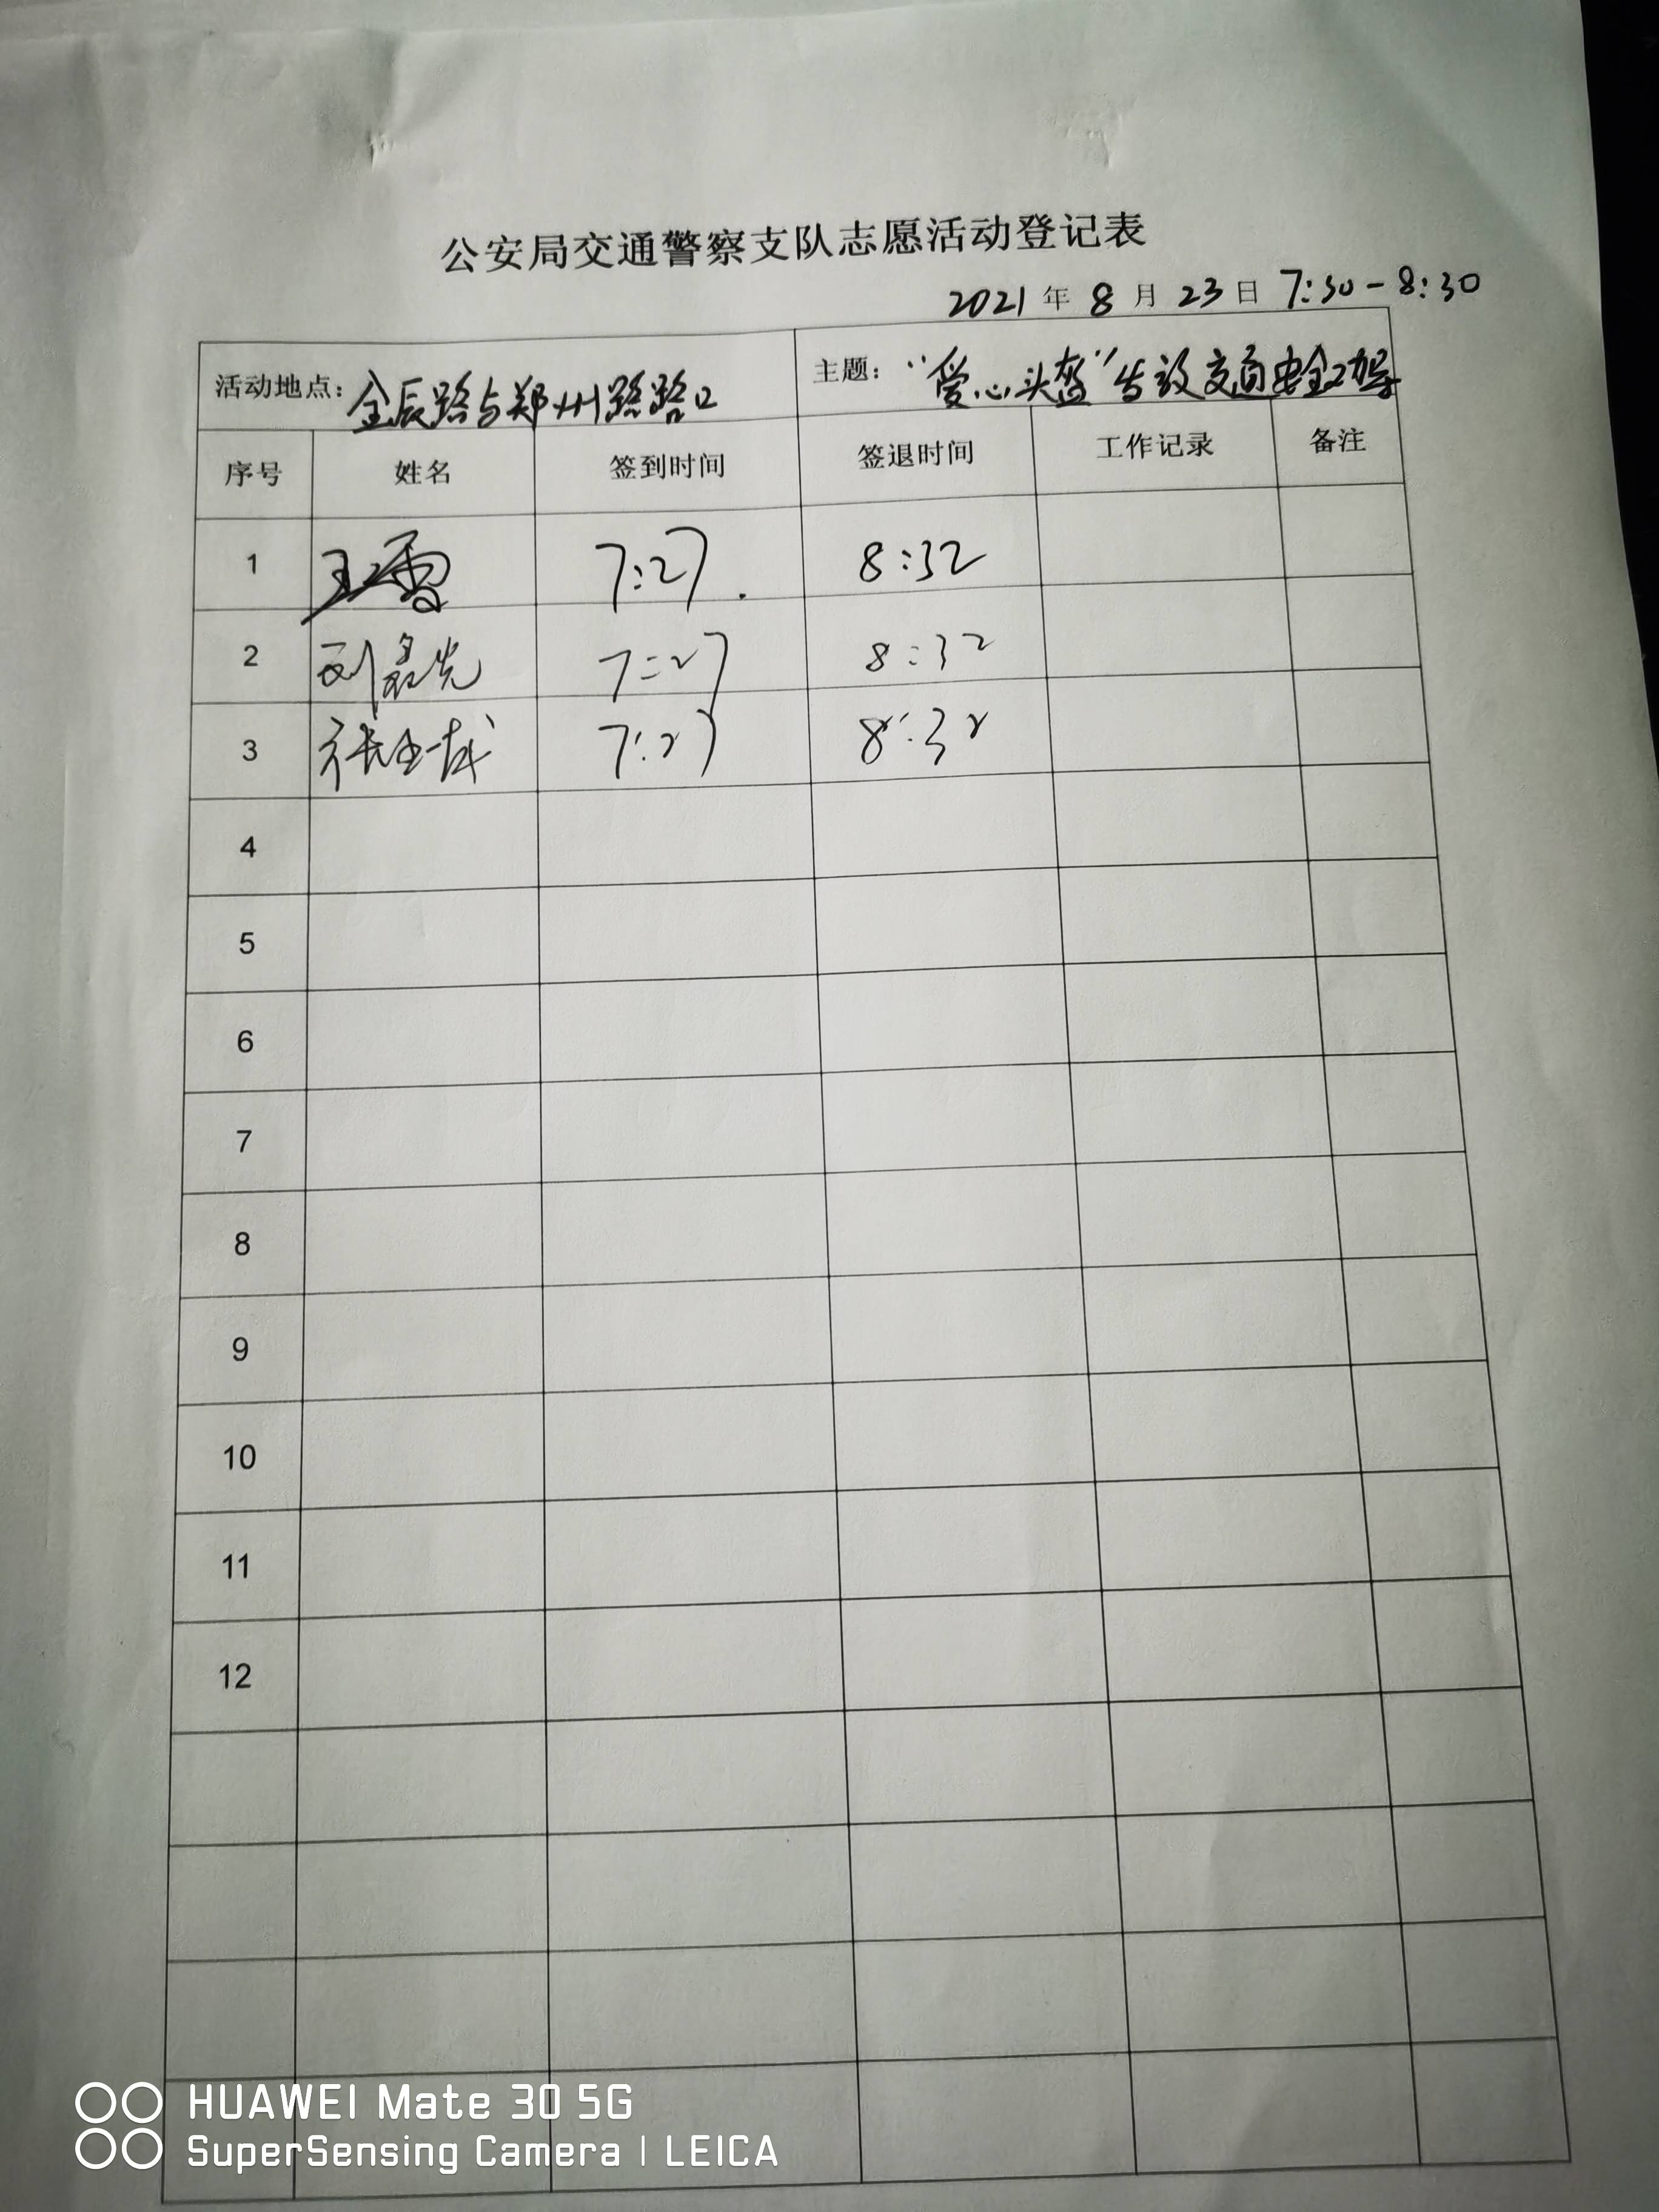 公安局交通警察支队志愿活动登记表
2021年8月23日 7:30-8:30
活动地点: 金辰路与郑州路路口 主题: “爱心头盔”
序号 姓名 签到时间 签退时间 工作记录 备注
1 王雪 7:27. 8:32
2 刘 7:27 8:32
3 张 7:27 8:32
4
5
6
7
8
9
10
11
12
HUAWEI Mate 30 5G
SuperSensing Camera | LEICA